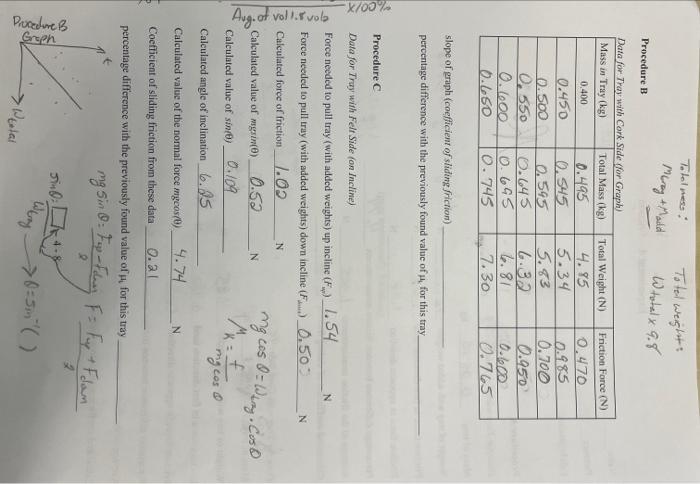 Total mass:
Mtray + Madd
Total weight:
Wtotal x 9.8
Procedure B
Data for Tray with Cork Side (for Graph)
Mass in Tray (kg) Total Mass (kg) Total Weight (N) Friction Force (N)
0.400 0.495 4.85 0.470
0.450 0.545 5.34 0.985
0.500 0.595 5.83 0.700
0.550 0.645 6.32 0.950
0.600 0.695 6.81 0.600
0.650 0.745 7.30 0.765
slope of graph (coefficient of sliding friction)
percentage difference with the previously found value of μ, for this tray
Procedure C
Data for Tray with Felt Side (on Incline)
Force needed to pull tray (with added weights) up incline (Fup) 1.54 N
Force needed to pull tray (with added weights) down incline (Fdown) 0.50 N
Calculated force of friction 1.02 N
Calculated value of mgsin(θ) 0.52 N
Calculated value of sin(θ) 0.109
Calculated angle of inclination 6.25
Calculated value of the normal force mgcos(θ) 4.74 N
Coefficient of sliding friction from these data 0.21
percentage difference with the previously found value of μ, for this tray
Avg. of vol 1. & vol 2
x100%
mg cos θ = Wtray . cos θ
μk = f / mg cos θ
mg sin θ = Fup - Fdown / 2
F = Fup + Fdown / 2
sin θ: 4.8
Wtray → θ = sin⁻¹( )
Procedure B
Graph
f
→ Wtotal